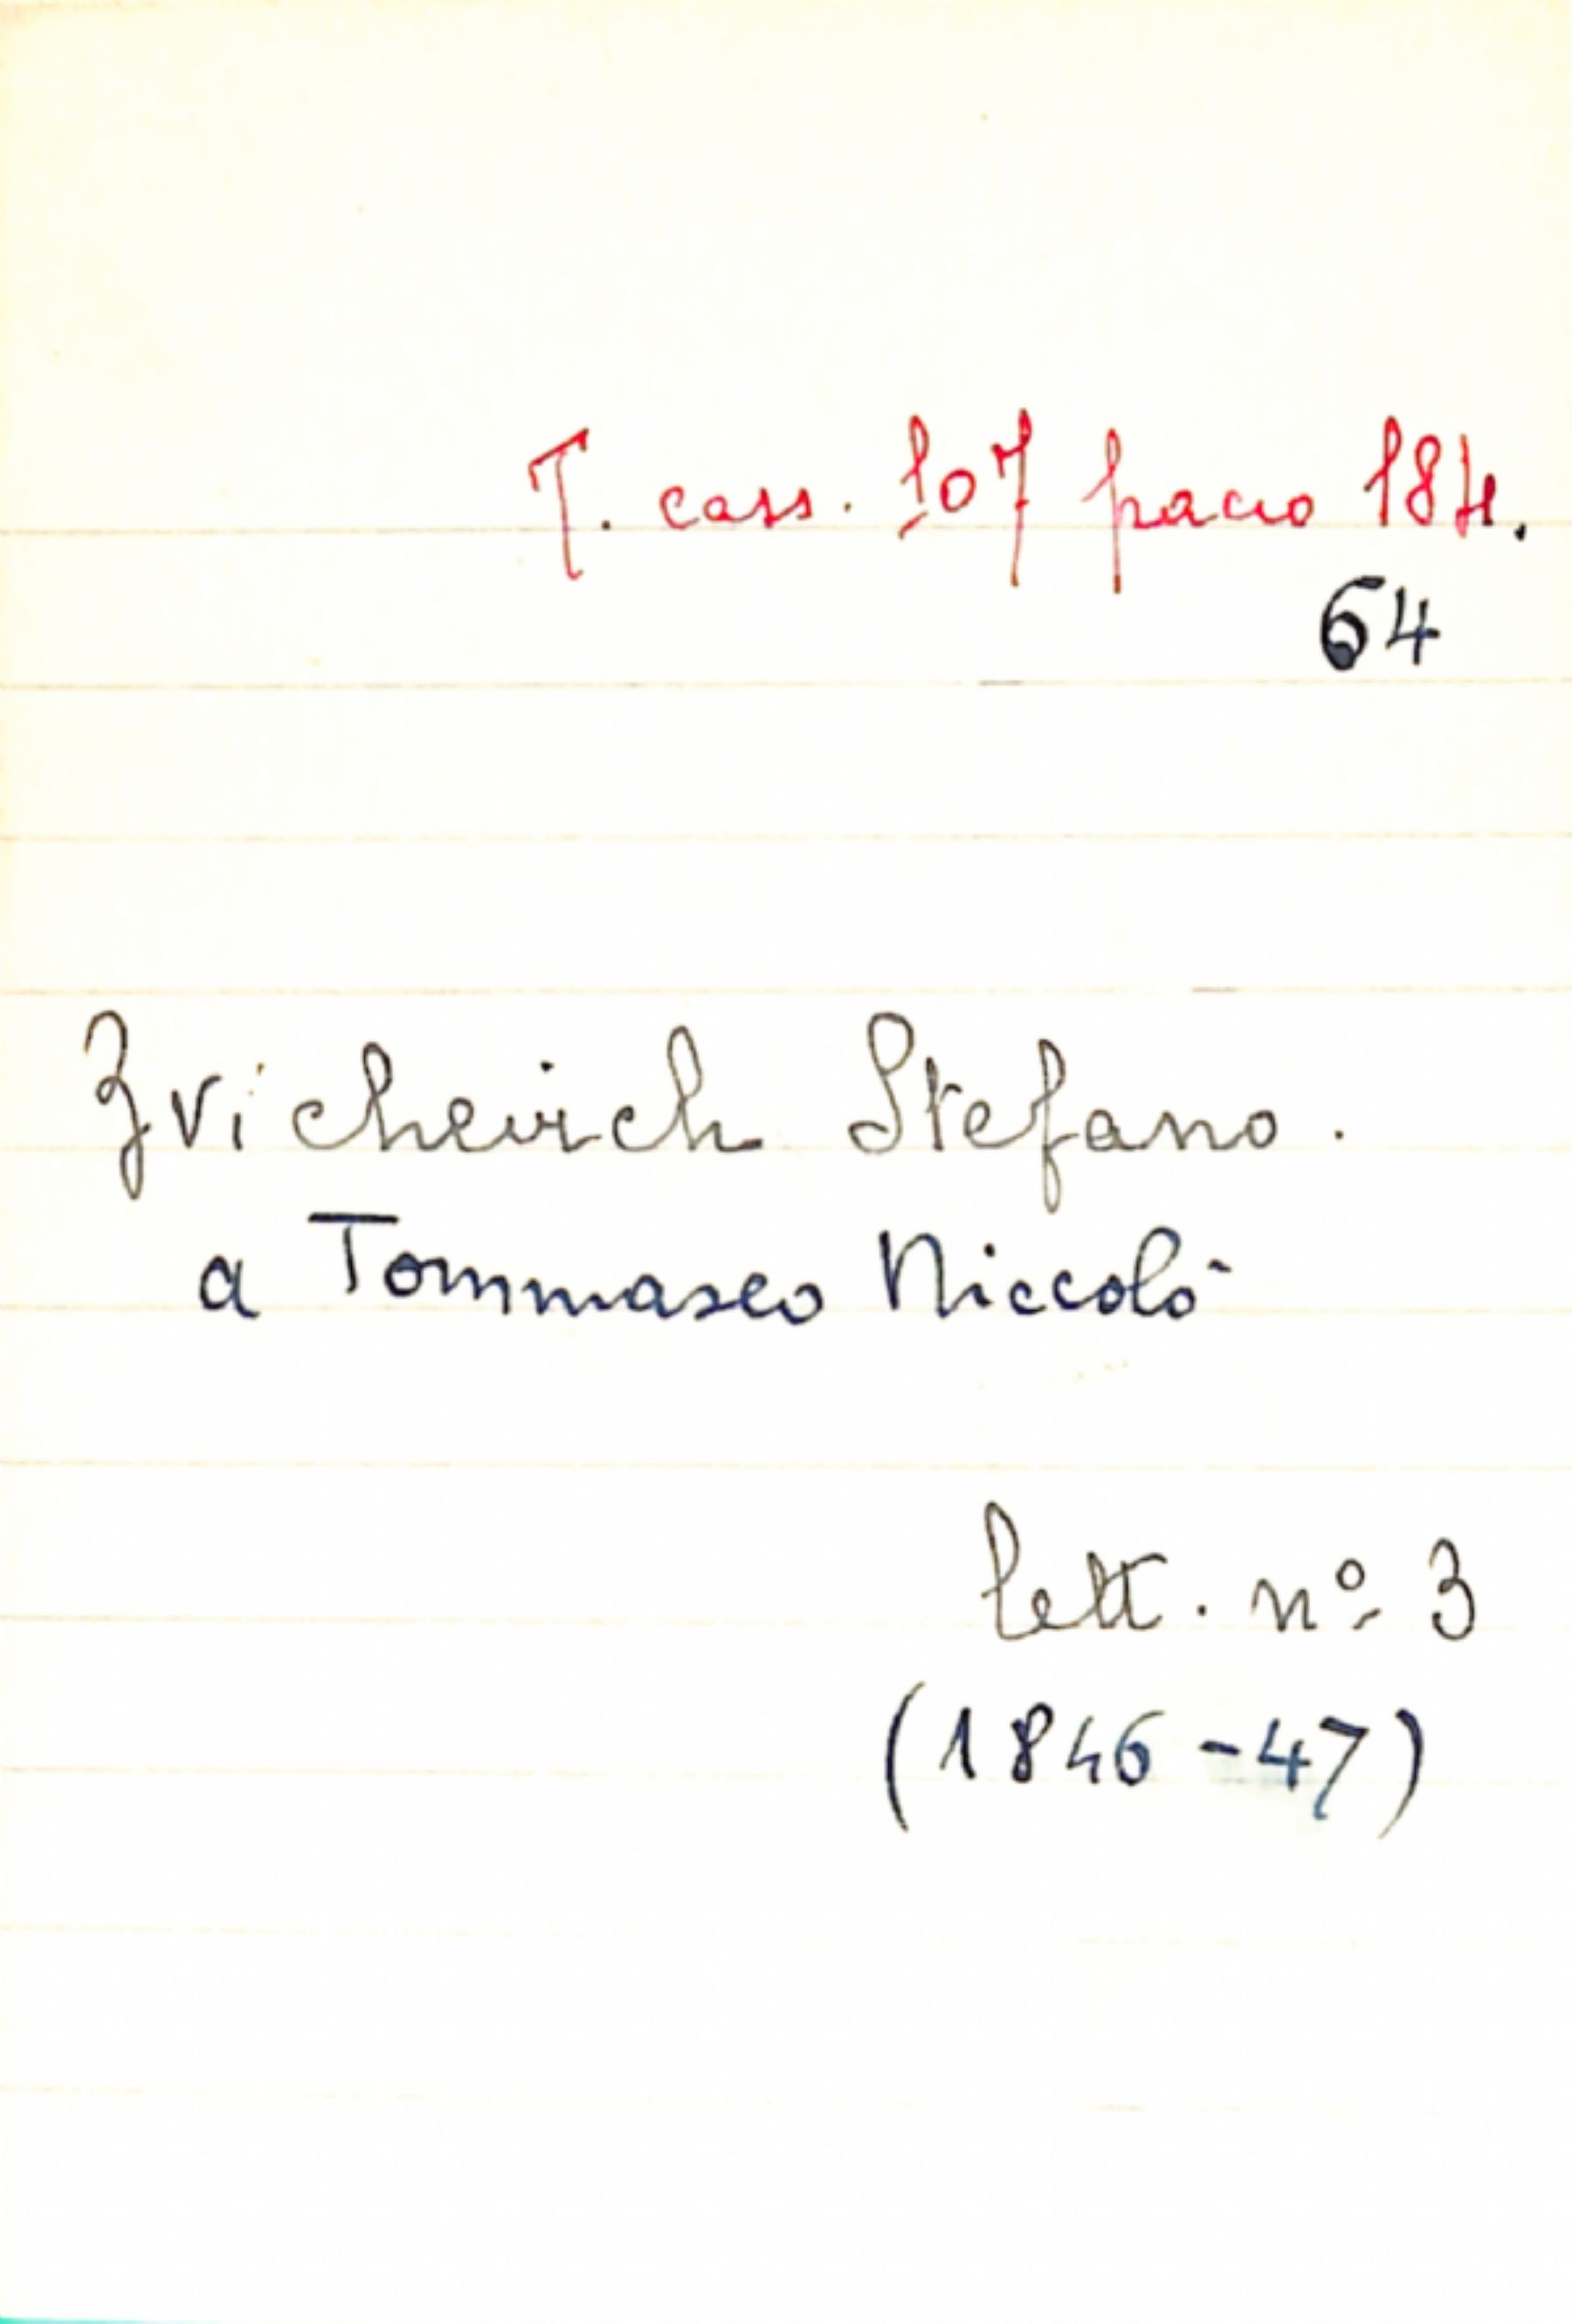 T. cass. 107 pacco 184.
64
Zvicheivich Stefano.
a Tommaseo Niccolò
lett. nº 3
(1846-47)